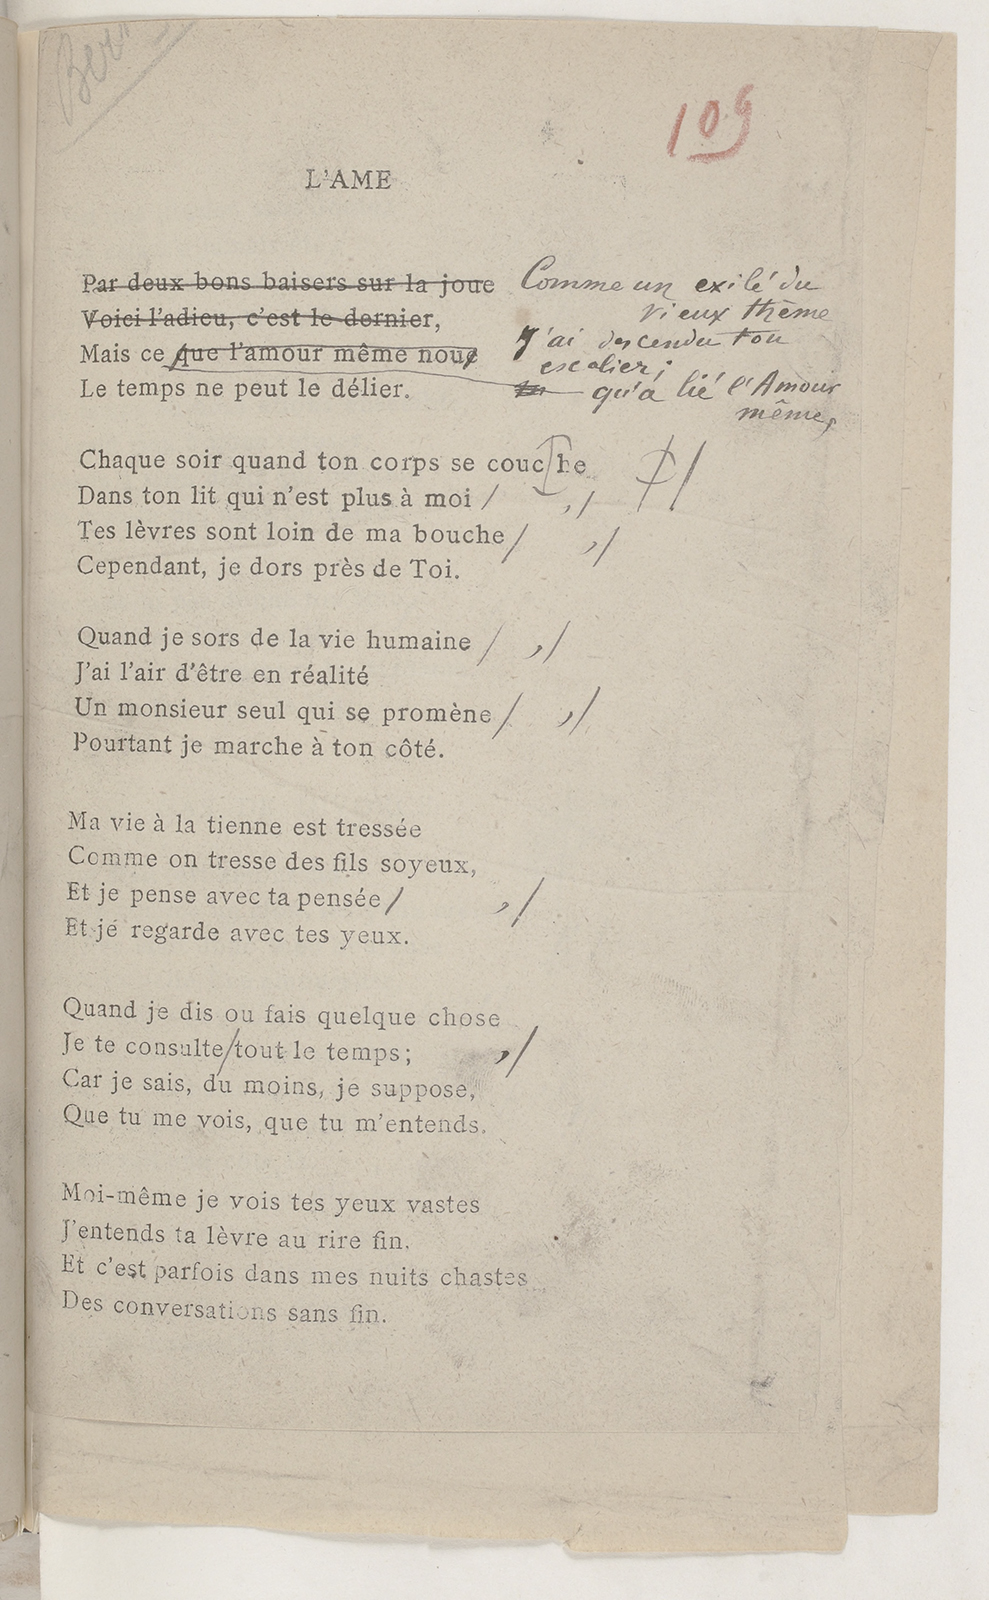 Ber
109
L'AME
Par deux bons baisers sur la joue Comme un exilé du
Voici l'adieu, c'est le dernier, vieux thème
Mais ce que l'amour même noue J'ai descendu ton
escalier;
Le temps ne peut le délier. qu'a lié l'Amour
même,
Chaque soir quand ton corps se couche
Dans ton lit qui n'est plus à moi / ,/
Tes lèvres sont loin de ma bouche / ,/
Cependant, je dors près de Toi.
Quand je sors de la vie humaine / ,/
J'ai l'air d'être en réalité
Un monsieur seul qui se promène / ,/
Pourtant je marche à ton côté.
Ma vie à la tienne est tressée
Comme on tresse des fils soyeux,
Et je pense avec ta pensée / ,/
Et je regarde avec tes yeux.
Quand je dis ou fais quelque chose
Je te consulte/tout le temps; ,/
Car je sais, du moins, je suppose,
Que tu me vois, que tu m'entends.
Moi-même je vois tes yeux vastes
J'entends ta lèvre au rire fin.
Et c'est parfois dans mes nuits chastes
Des conversations sans fin.